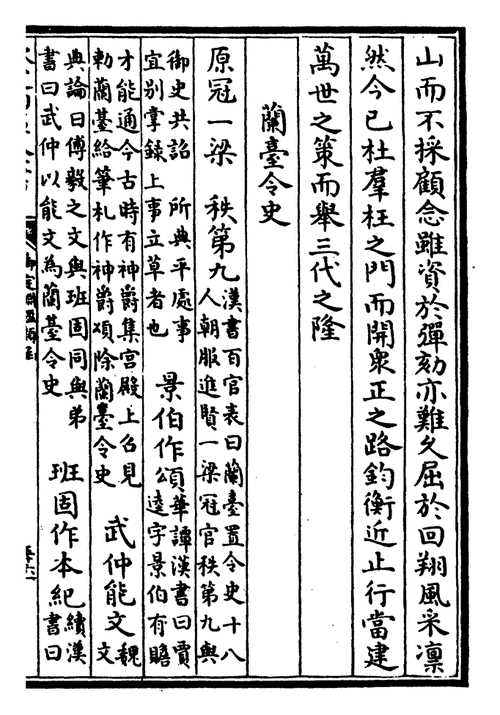 山而不採顧念雖資於彈劾亦難久屈於回翔風采凜
然今已杜羣枉之門而開衆正之路鈞衡近止行當建
萬世之策而舉三代之隆
蘭臺令史
原冠一梁 秩第九 漢書百官表曰蘭臺置令史十八
人朝服進賢一梁冠官秩第九與
御史共詔 所典平處事
宜别掌録上事立草者也
景伯作頌 華譚漢書曰賈
逵字景伯有贍
才能通今古時有神爵集宫殿上召見
勅蘭臺給筆札作神爵頌除蘭臺令史
武仲能文 魏
文
典論曰傅毅之文與班固同與弟
書曰武仲以能文為蘭臺令史
班固作本紀 續漢
書曰